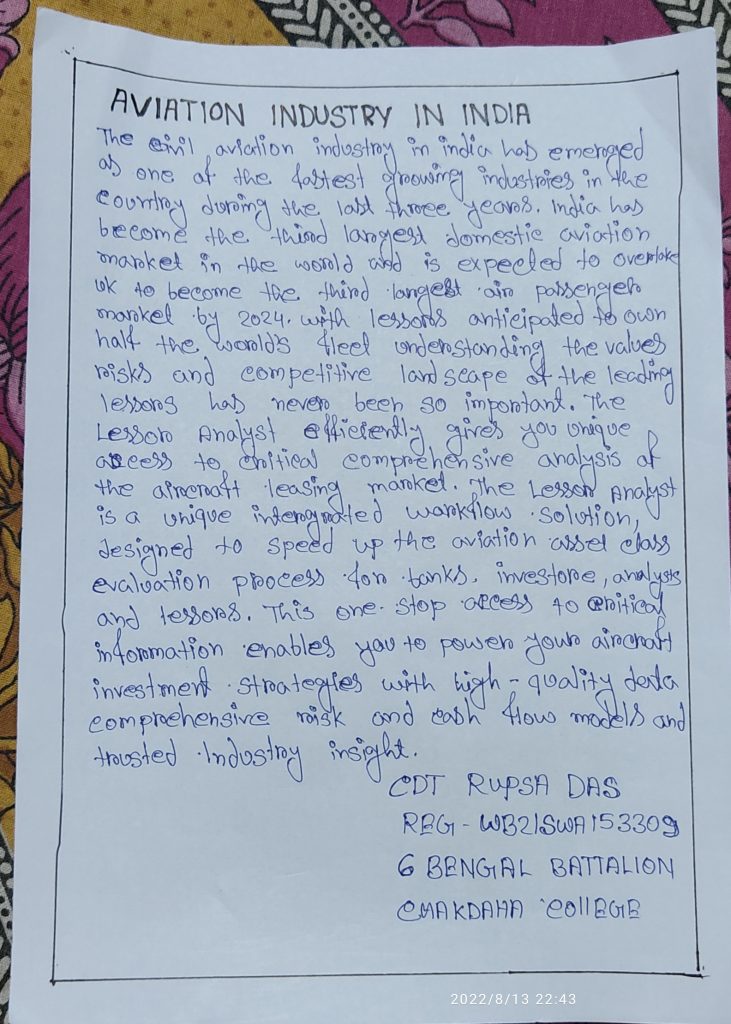 AVIATION INDUSTRY IN INDIA
The civil aviation industry in india has emerged
as one of the fastest growing industries in the
country during the last three years. India has
become the third largest domestic aviation
market in the world and is expected to overtake
uk to become the third largest air passenger
market by 2024. with lessors anticipated to own
half the world's fleet understanding the values
risks and competitive landscape of the leading
lessors has never been so important. The
Lessor Analyst efficiently gives you unique
access to critical comprehensive analysis of
the aircraft leasing market. The Lessor Analyst
is a unique intergrated workflow solution,
designed to speed up the aviation asset class
evaluation process for banks, investore, analysts
and lessors. This one-stop access to critical
information enables you to power your aircraft
investment strategies with high-quality data
comprehensive risk and cash flow models and
trusted Industry insight.
CDT RUPSA DAS
REG - WB21SWA153309
6 BENGAL BATTALION
CHAKDAHA COllEGE
2022/8/13 22:43